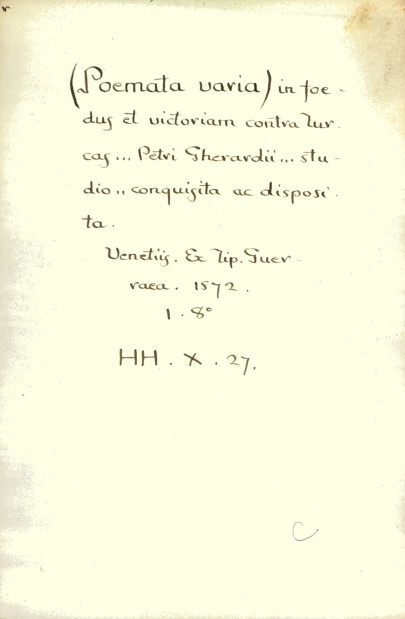 (Poemata varia) in foe-
dus et victoriam contra Tur.
cas... Petri Gherardii... stu-
dio.. conquisita ac disposi.
ta.
Venetiis. Ex Tip. Guer-
raea. 1572.
1. 8°
HH. X. 27.
C